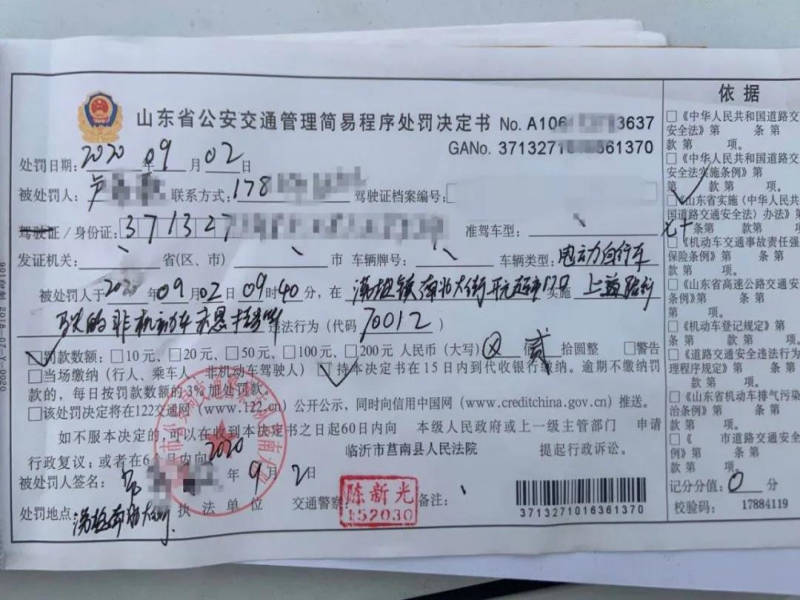 山东省公安交通管理简易程序处罚决定书 No. A106 3637
GANo. 3713271 1661370
处罚日期: 2020 年 09 月 02 日
被处罚人: 联系方式: 178 驾驶证档案编号:
驾驶证/身份证: 371327 准驾车型:
发证机关: 省(区、市) 市 车辆牌号: 车辆类型: 电动自行车
被处罚人于 2020 年 09 月 02 日 09 时 40 分, 在 镇南北大街 实施 上道路行
驶的非机动车未悬挂号牌 违法行为 (代码 70012 )
☑罚款数额: □10 元、□20 元、□50 元、□100 元、□200 元 人民币 (大写) 贰 拾圆整 □警告
□当场缴纳 (行人、乘车人、非机动车驾驶人) □持本决定书在 15 日内到代收银行缴纳。逾期不缴纳罚
款的, 每日按罚款数额的 3% 加处罚款。
□该处罚决定将在122交通网 (www.122.cn) 公开公示, 同时向信用中国网 (www.creditchina.gov.cn) 推送。
如不服本决定的, 可以在收到本决定书之日起60日内向 本级人民政府或上一级主管部门 申请
行政复议; 或者在6个月内向 临沂市莒南县人民法院 提起行政诉讼。
被处罚人签名: 2020 年 9 月 2 日
处罚地点: 南北大街 执法单位 交通警察: 陈新光 152030 备注:
3713271016361370
依 据
□《中华人民共和国道路交通
安全法》第 条 第
款 第 项。
□《中华人民共和国道路交通
安全法实施条例》第
条 第 款 第 项。
□山东省实施《中华人民共和
国道路交通安全法》办法》第
七十条第 款第 项。
□《机动车交通事故责任强制
保险条例》第 条第 款
□《山东省高速公路交通安全
条例》第 条第 款
□《机动车登记规定》第
条第 款第 项。
□《道路交通安全违法行为处
理程序规定》第 条第
款 第 项。
□《山东省机动车排气污染防
治条例》第 条第 款
□《 市道路交通安全
》第 条第 款
记分分值: 0 分
校验码: 17884119